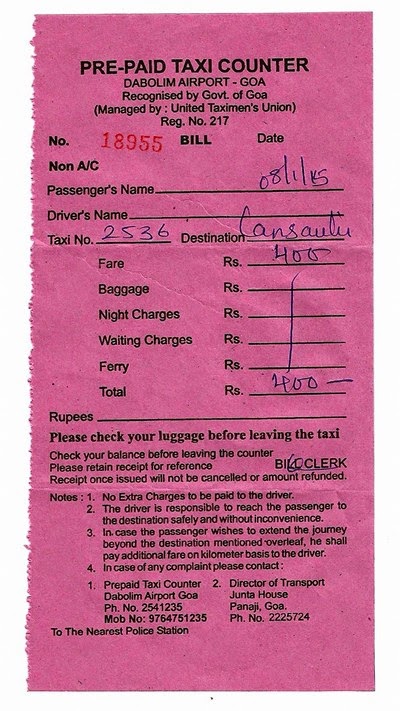 PRE-PAID TAXI COUNTER
DABOLIM AIRPORT - GOA
Recognised by Govt. of Goa
(Managed by : United Taximen's Union)
Reg. No. 217
No. 18955 BILL Date
Non A/C 08/1/15
Passenger's Name
Driver's Name
Taxi No. 2536 Destination Cansaulu
Fare Rs. 400
Baggage Rs.
Night Charges Rs.
Waiting Charges Rs.
Ferry Rs.
Total Rs. 400 —
Rupees
Please check your luggage before leaving the taxi
Check your balance before leaving the counter
Please retain receipt for reference BILL CLERK
Receipt once issued will not be cancelled or amount refunded.
Notes : 1. No Extra Charges to be paid to the driver.
2. The driver is responsible to reach the passenger to
the destination safely and without inconvenience.
3. In case the passenger wishes to extend the journey
beyond the destination mentioned overleaf, he shall
pay additional fare on kilometer basis to the driver.
4. In case of any complaint please contact :
1. Prepaid Taxi Counter 2. Director of Transport
Dabolim Airport Goa Junta House
Ph. No. 2541235 Panaji, Goa.
Mob No: 9764751235 Ph. No. 2225724
To The Nearest Police Station